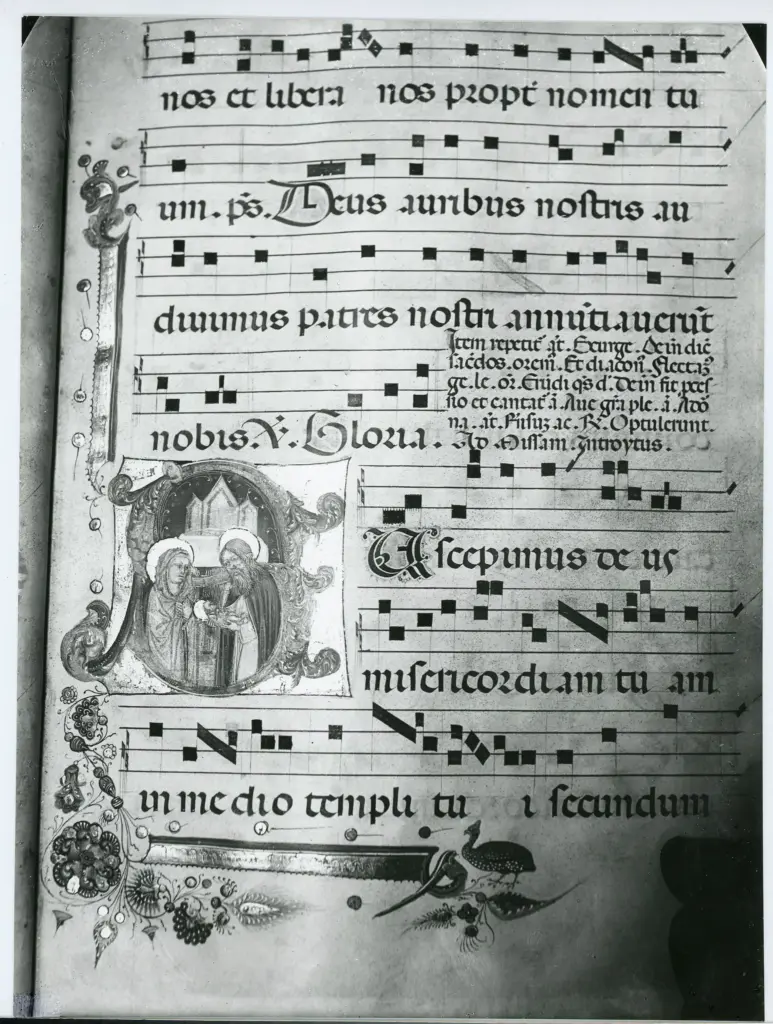 nos et libera nos propt̃ nomen tu
um. p̃s. Deus auribus nostris au
diuimus patres nostri annũtiauerũt
nobis. V̓. Gloria.
Item repetit̃ añ. Exurge. Dein dic̃
sac̃dos. orem̃. Et diacoñ. Flecta
ge. le. or̃. Exaudi q̃s d. Dein fit p̃ces
sio et cantat̃ a. Aue gr̃a ple. a. Ado
na. añ. Rñsuz ac. R̃. Optulerunt.
Ad Missam. Introytus.
Uscepimus de us
misericordiam tu am
in me dio templi tu i secundum